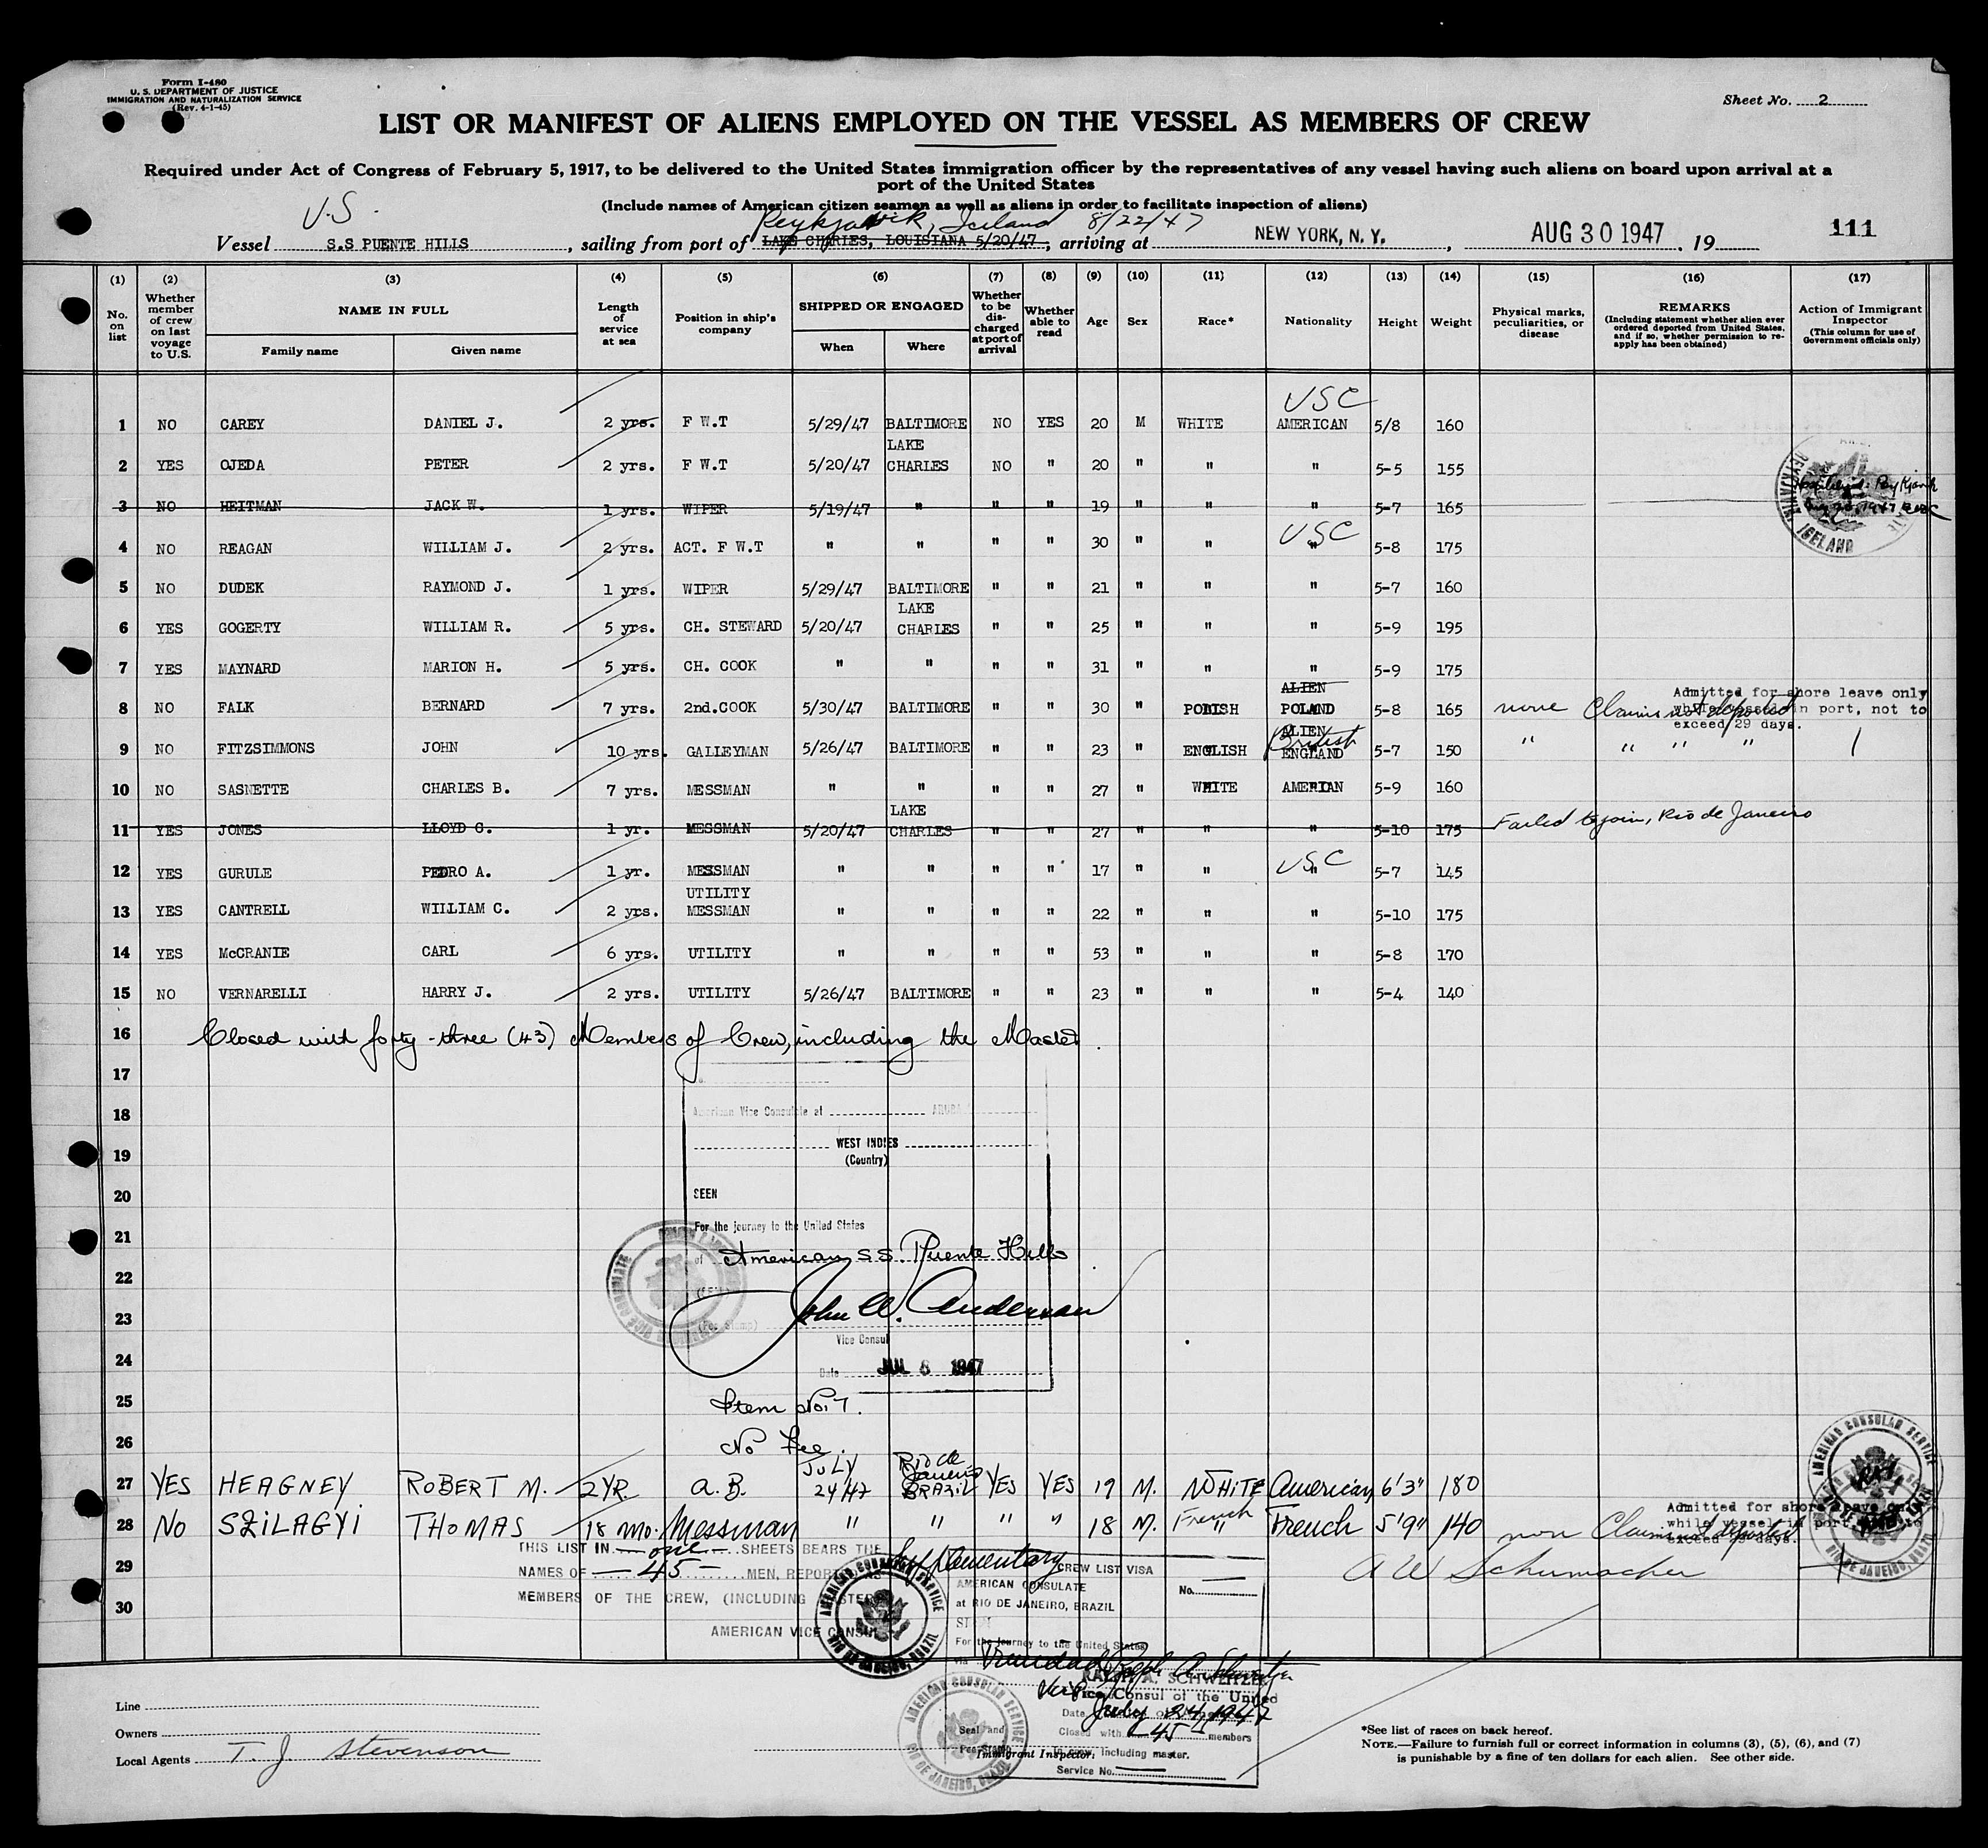 Form I-480
U. S. DEPARTMENT OF JUSTICE
IMMIGRATION AND NATURALIZATION SERVICE
(Rev. 4-1-45)
Sheet No. 2
LIST OR MANIFEST OF ALIENS EMPLOYED ON THE VESSEL AS MEMBERS OF CREW
Required under Act of Congress of February 5, 1917, to be delivered to the United States immigration officer by the representatives of any vessel having such aliens on board upon arrival at a
port of the United States
(Include names of American citizen seamen as well as aliens in order to facilitate inspection of aliens)
U.S.
Reykjavik, Iceland 8/22/47
Vessel S.S PUENTE HILLS, sailing from port of LAKE CHARLES, LOUISIANA 5/20/47, arriving at NEW YORK, N. Y., AUG 30 1947, 19
111
(1) (2) (3) (4) (5) (6) (7) (8) (9) (10) (11) (12) (13) (14) (15) (16) (17)
No. on list
Whether member of crew on last voyage to U.S.
NAME IN FULL
Family name
Given name
Length of service at sea
Position in ship's company
SHIPPED OR ENGAGED
When
Where
Whether to be discharged at port of arrival
Whether able to read
Age
Sex
Race*
Nationality
Height
Weight
Physical marks, peculiarities, or disease
REMARKS
(Including statement whether alien ever ordered deported from United States, and if so, whether permission to re-apply has been obtained)
Action of Immigrant Inspector
(This column for use of Government officials only)
USC
1 NO CAREY DANIEL J. 2 yrs. F W.T 5/29/47 BALTIMORE NO YES 20 M WHITE AMERICAN 5/8 160
2 YES OJEDA PETER 2 yrs. F W.T 5/20/47 LAKE CHARLES NO " 20 " " " 5-5 155
3 NO HEITMAN JACK W. 1 yrs. WIPER 5/19/47 " " " 19 " " " 5-7 165
USC
4 NO REAGAN WILLIAM J. 2 yrs. ACT. F W.T " " " " 30 " " " 5-8 175
5 NO DUDEK RAYMOND J. 1 yrs. WIPER 5/29/47 BALTIMORE " " 21 " " " 5-7 160
6 YES GOGERTY WILLIAM R. 5 yrs. CH. STEWARD 5/20/47 LAKE CHARLES " " 25 " " " 5-9 195
7 YES MAYNARD MARION H. 5 yrs. CH. COOK " " " " 31 " " " 5-9 175
8 NO FALK BERNARD 7 yrs. 2nd.COOK 5/30/47 BALTIMORE " " 30 " POLISH ALIEN POLAND 5-8 165 none Claims not deported
Admitted for shore leave only
while vessel in port, not to
exceed 29 days.
9 NO FITZSIMMONS JOHN 10 yrs. GALLEYMAN 5/26/47 BALTIMORE " " 23 " ENGLISH ALIEN British ENGLAND 5-7 150 " " " "
10 NO SASNETTE CHARLES B. 7 yrs. MESSMAN " " " " 27 " WHITE AMERIAN 5-9 160
11 YES JONES LLOYD C. 1 yr. MESSMAN 5/20/47 LAKE CHARLES " " 27 " " " 5-10 175 Failed to join, Rio de Janeiro
USC
12 YES GURULE PEDRO A. 1 yr. MESSMAN " " " " 17 " " " 5-7 145
13 YES CANTRELL WILLIAM C. 2 yrs. UTILITY MESSMAN " " " " 22 " " " 5-10 175
14 YES McCRANIE CARL 6 yrs. UTILITY " " " " 53 " " " 5-8 170
15 NO VERNARELLI HARRY J. 2 yrs. UTILITY 5/26/47 BALTIMORE " " 23 " " " 5-4 140
16 Closed with forty-three (43) Members of Crew, including the Master.
17
18 American Vice Consulate at ARUBA
19 WEST INDIES
(Country)
20 SEEN
21 For the journey to the United States
22 of American S.S. Puente Hills
23 John W. Anderson
Vice Consul
24 Date JUL 8 1947
25 Item No. 7.
26 No Fee.
27 YES HEAGNEY ROBERT M. 2YR. A.B. JULY 24/47 Rio de Janeiro BRAZIL YES YES 19 M. WHITE American 6'3" 180
28 NO SZILAGYI THOMAS 18 mo. Messman " " " " 18 M. French French 5'9" 140 non Claims not deported
Admitted for shore leave only
while vessel in port
exceed 29 days.
29 THIS LIST IN one SHEETS BEARS THE
NAMES OF 45 MEN, REPORTED AS
30 MEMBERS OF THE CREW, (INCLUDING
AMERICAN VICE CONSUL
AMERICAN CONSULAR SERVICE
RIO DE JANEIRO, BRAZIL
Supplementary CREW LIST VISA
AMERICAN CONSULATE No.
at RIO DE JANEIRO, BRAZIL
For the journey to the United States
via Trinidad
RALPH A. SCHWEITZER
Vice Consul of the United
Date July 24, 1947
Closed with 45 members
crew, including master.
Service No.
A W Schumacher
Line
Owners
Local Agents T. J. Stevenson
Immigrant Inspector.
*See list of races on back hereof.
NOTE.—Failure to furnish full or correct information in columns (3), (5), (6), and (7)
is punishable by a fine of ten dollars for each alien. See other side.